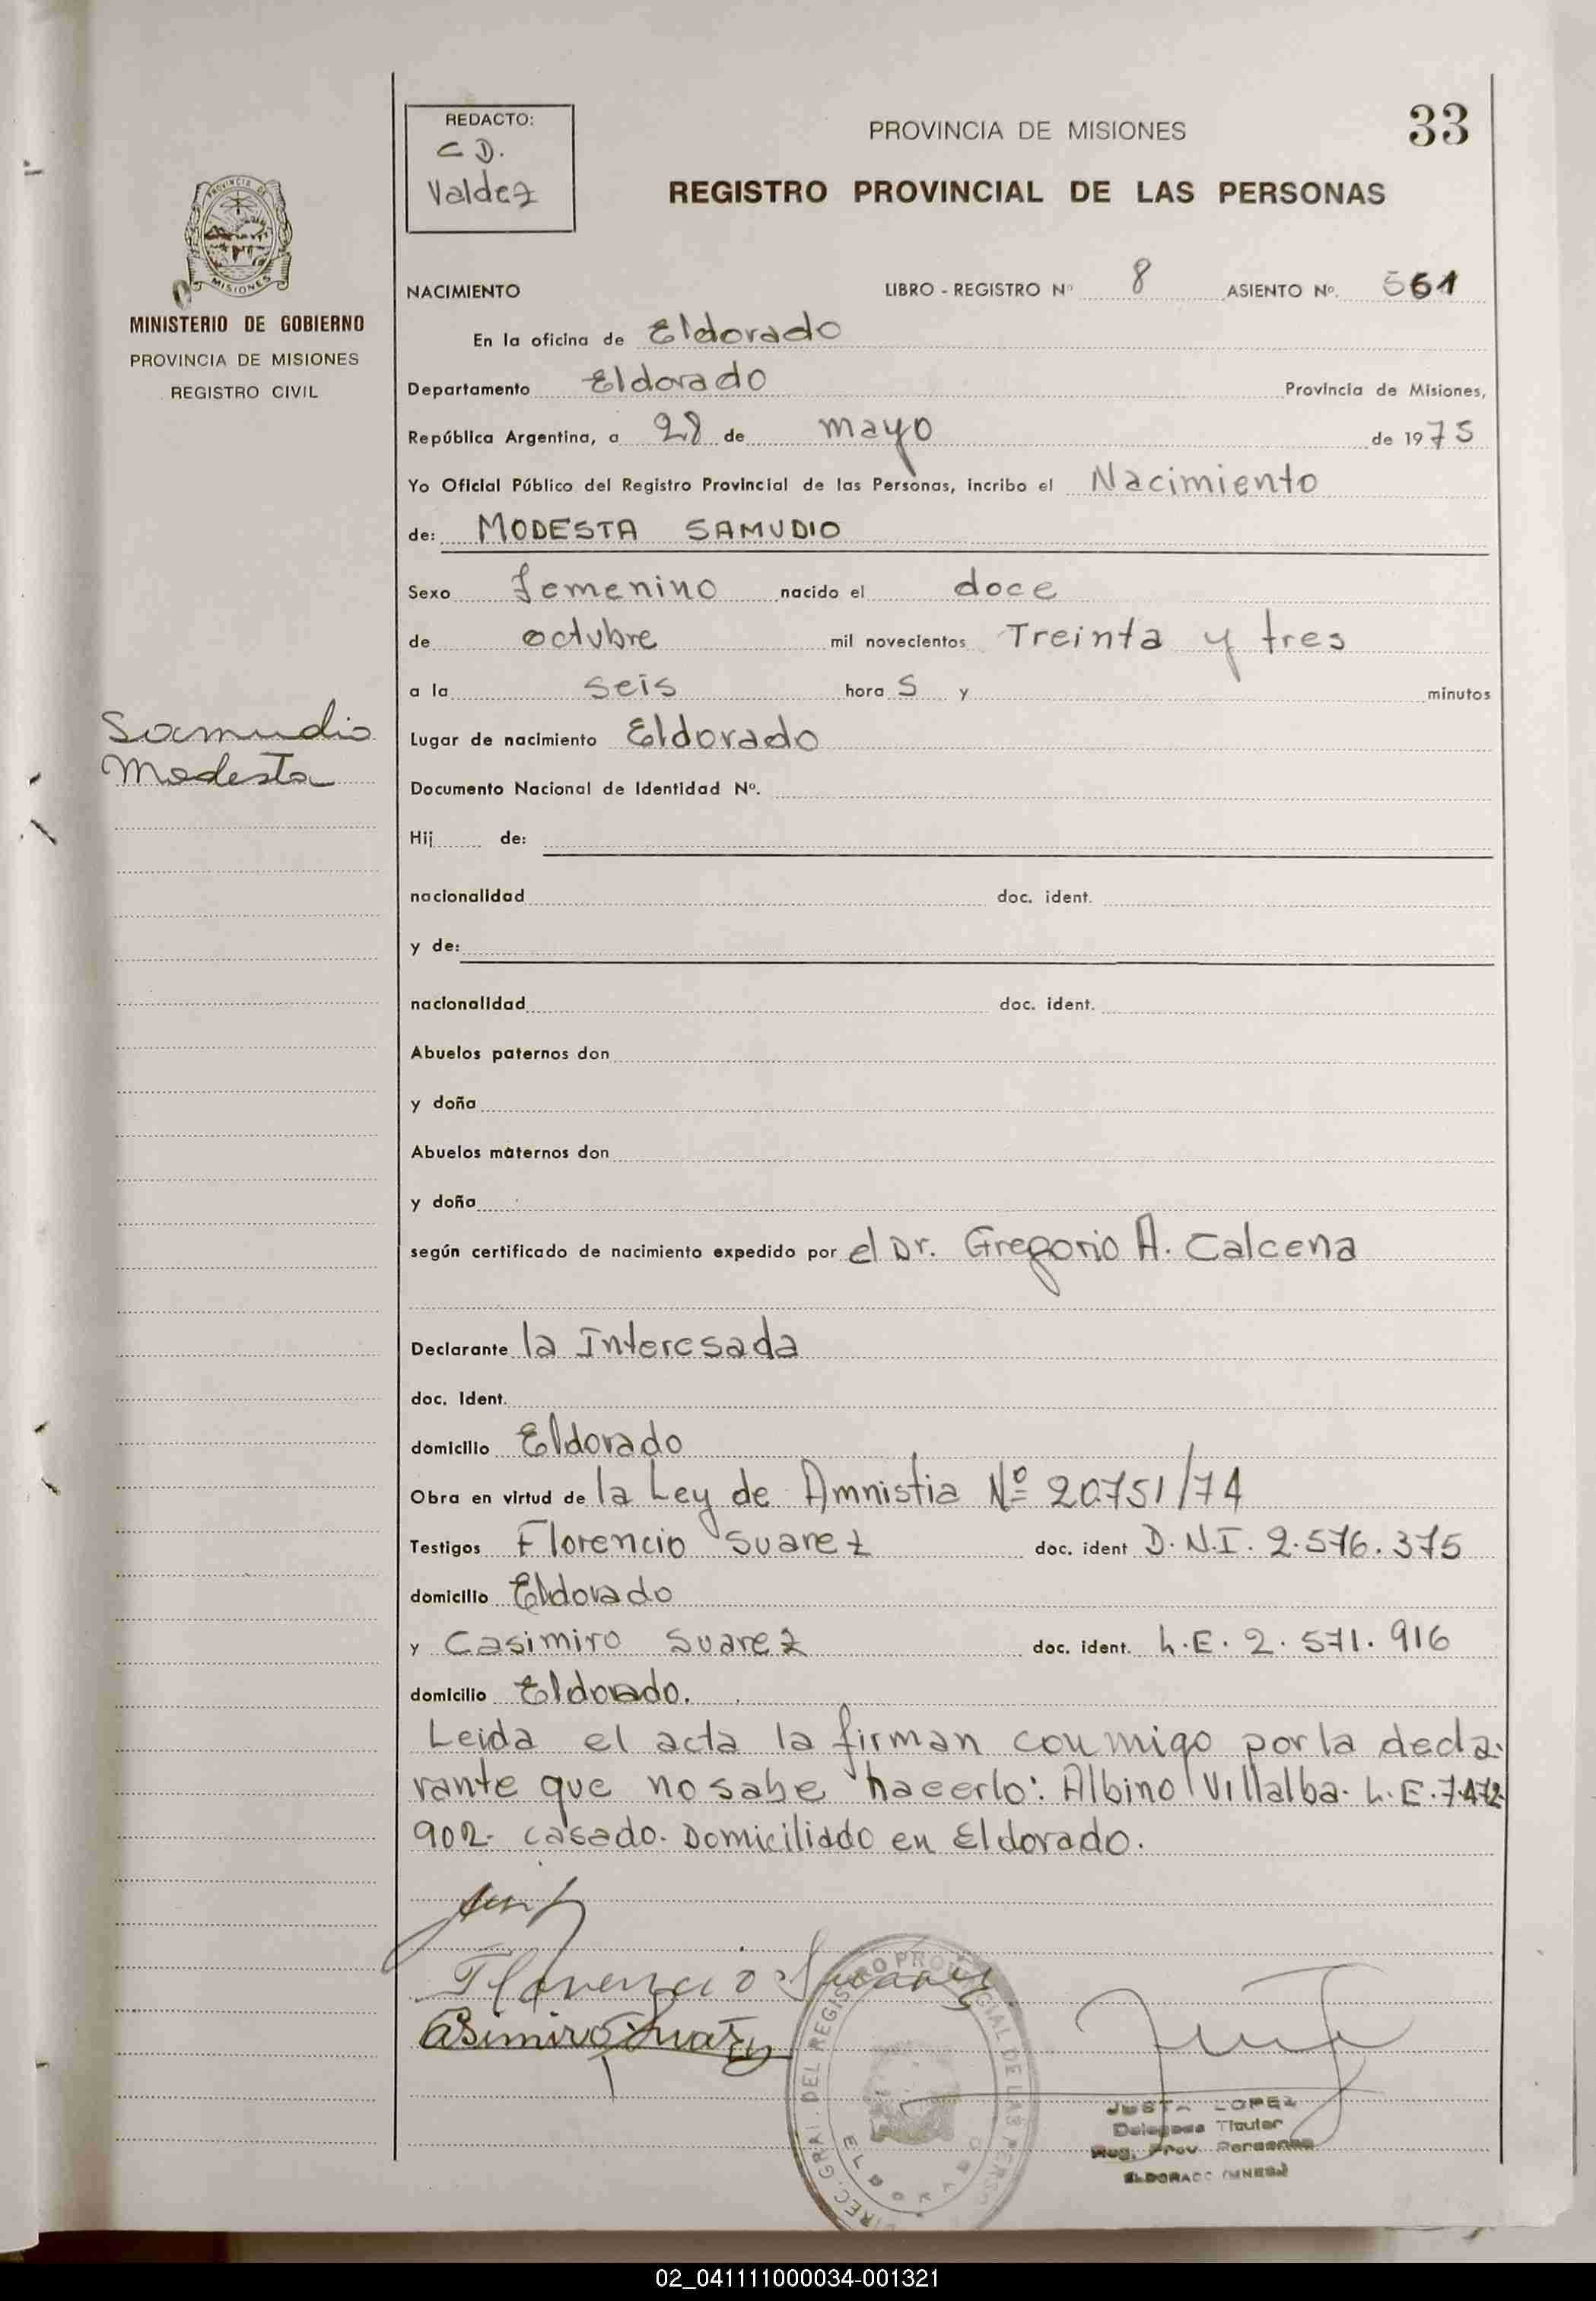 REDACTO:
C D.
Valdez
PROVINCIA DE MISIONES
33
REGISTRO PROVINCIAL DE LAS PERSONAS
PROVINCIA DE
MISIONES
MINISTERIO DE GOBIERNO
PROVINCIA DE MISIONES
REGISTRO CIVIL
NACIMIENTO LIBRO - REGISTRO Nº 8 ASIENTO Nº. 561
En la oficina de Eldorado
Departamento Eldorado Provincia de Misiones,
República Argentina, a 28 de mayo de 1975
Yo Oficial Público del Registro Provincial de las Personas, incribo el Nacimiento
de: MODESTA SAMUDIO
Sexo femenino nacido el doce
de octubre mil novecientos Treinta y tres
a la seis hora s y minutos
Samudio
Modesta
Lugar de nacimiento Eldorado
Documento Nacional de Identidad Nº.
Hij de:
nacionalidad doc. ident.
y de:
nacionalidad doc. ident.
Abuelos paternos don
y doña
Abuelos maternos don
y doña
según certificado de nacimiento expedido por el Dr. Gregorio A. Calcena
Declarante la Interesada
doc. Ident.
domicilio Eldorado
Obra en virtud de la Ley de Amnistia Nº 20751/74
Testigos Florencio Suarez doc. ident D.N.I. 2.576.375
domicilio Eldorado
y Casimiro Suarez doc. ident. L.E. 2.571.916
domicilio Eldorado.
Leida el acta la firman conmigo por la decla-
rante que no sabe hacerlo: Albino Villalba. L.E. 7.472
902. casado. Domiciliado en Eldorado.
Florencio Suarez
Casimiro Suarez
DIREC. GRAL. DEL REGISTRO PROVINCIAL DE LAS PERSO
ELDORADO
JUSTA LOPEZ
Delegada Titular
Reg. Prov. Personas
ELDORADO (MNES.)
02_041111000034-001321